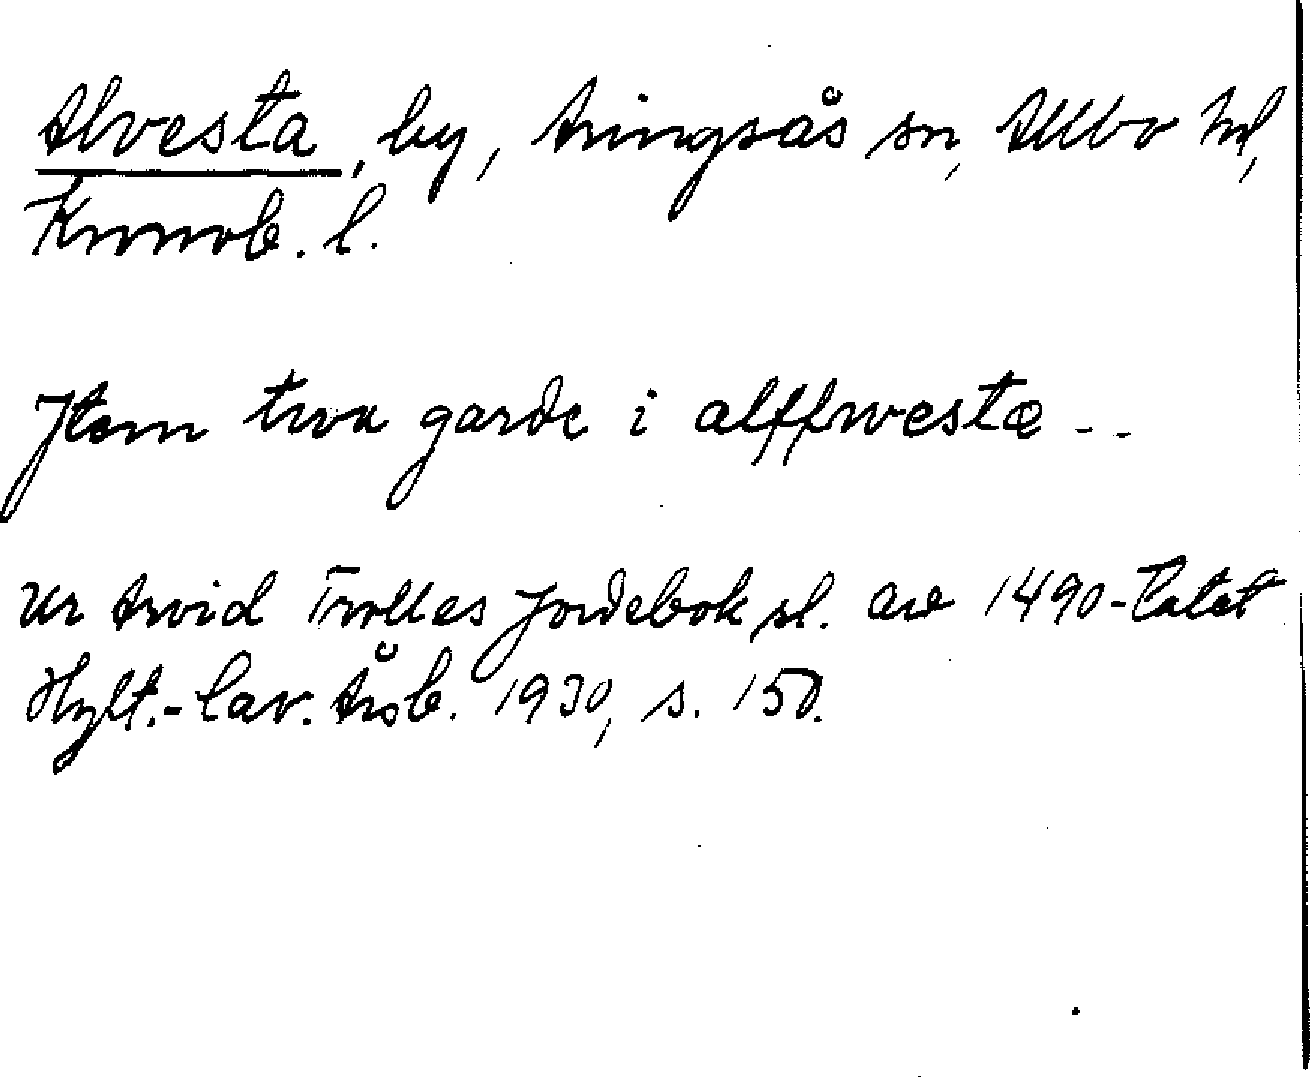 Alvesta, by, Aringsås sn, Allbo hd,
Kronob. l.
Jtem twa garde i alffwesta - -
Ur Arvid Trolles Jordebok sl. av 1490-talet
Hylt.-Cav. Årsb. 1930, s. 150.